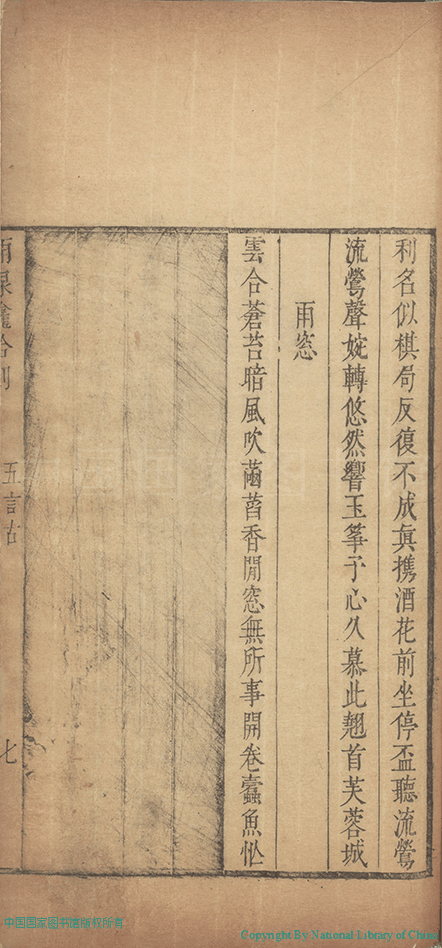 利名似棋局反復不成眞携酒花前坐停盃聽流鶯
流鶯聲婉轉悠然響玉箏予心久慕此翹首芙蓉城
雨窓
雲合蒼苔暗風吹菡萏香閒窓無所事開卷蠹魚忙
雨泉龕合刻 五言古 七
中国国家图书馆版权所有
Copyright By National Library of China